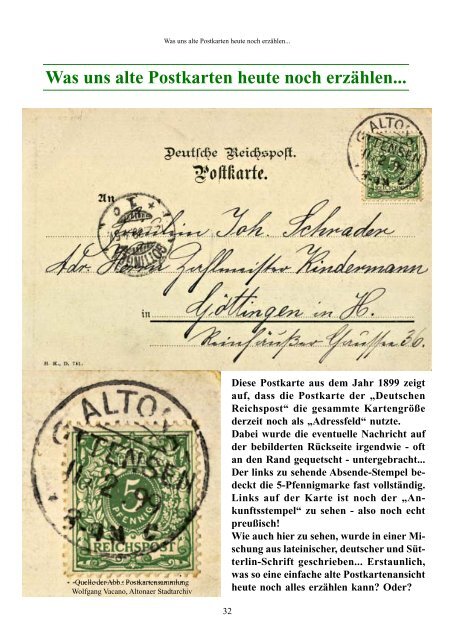 Was uns alte Postkarten heute noch erzählen...
Was uns alte Postkarten heute noch erzählen...
Deutsche Reichspost.
Postkarte.
An
Fräulein Joh. Schrader
Adr. Herrn Zahlmeister Kindermann
in Göttingen in H.
Reinhäuser Chaussee 36.
H. K., D. 741.
ALTONA
OTTENSEN
GÖTTINGEN
ALTONA
OTTENSEN
5
PFENNIG
REICHSPOST
Quelle der Abb.: Postkartensammlung
Wolfgang Vacano, Altonaer Stadtarchiv
Diese Postkarte aus dem Jahr 1899 zeigt
auf, dass die Postkarte der „Deutschen
Reichspost“ die gesammte Kartengröße
derzeit noch als „Adressfeld“ nutzte.
Dabei wurde die eventuelle Nachricht auf
der bebilderten Rückseite irgendwie - oft
an den Rand gequetscht - untergebracht...
Der links zu sehende Absende-Stempel be-
deckt die 5-Pfennigmarke fast vollständig.
Links auf der Karte ist noch der „An-
kunftsstempel“ zu sehen - also noch echt
preußisch!
Wie auch hier zu sehen, wurde in einer Mi-
schung aus lateinischer, deutscher und Süt-
terlin-Schrift geschrieben... Erstaunlich,
was so eine einfache alte Postkartenansicht
heute noch alles erzählen kann? Oder?
32